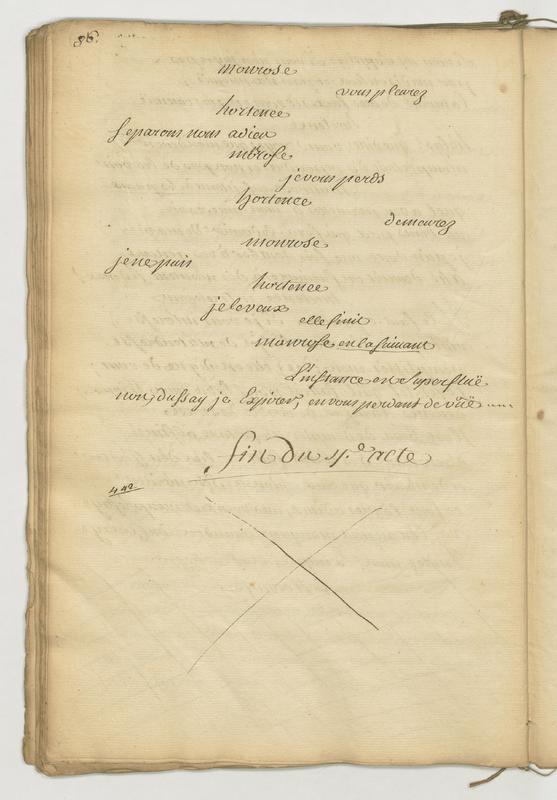 86.
monrose
vous pleurez
hortence
separons nous adieu
mõrose
je vous perds
hortence
demeurez
monrose
je ne puis
hortence
je le veux
elle finit
monrose en la suivant
L'instance est superfluë
non, dussay je Expirer, en vous perdant de vuë ....
fin du 4.e acte